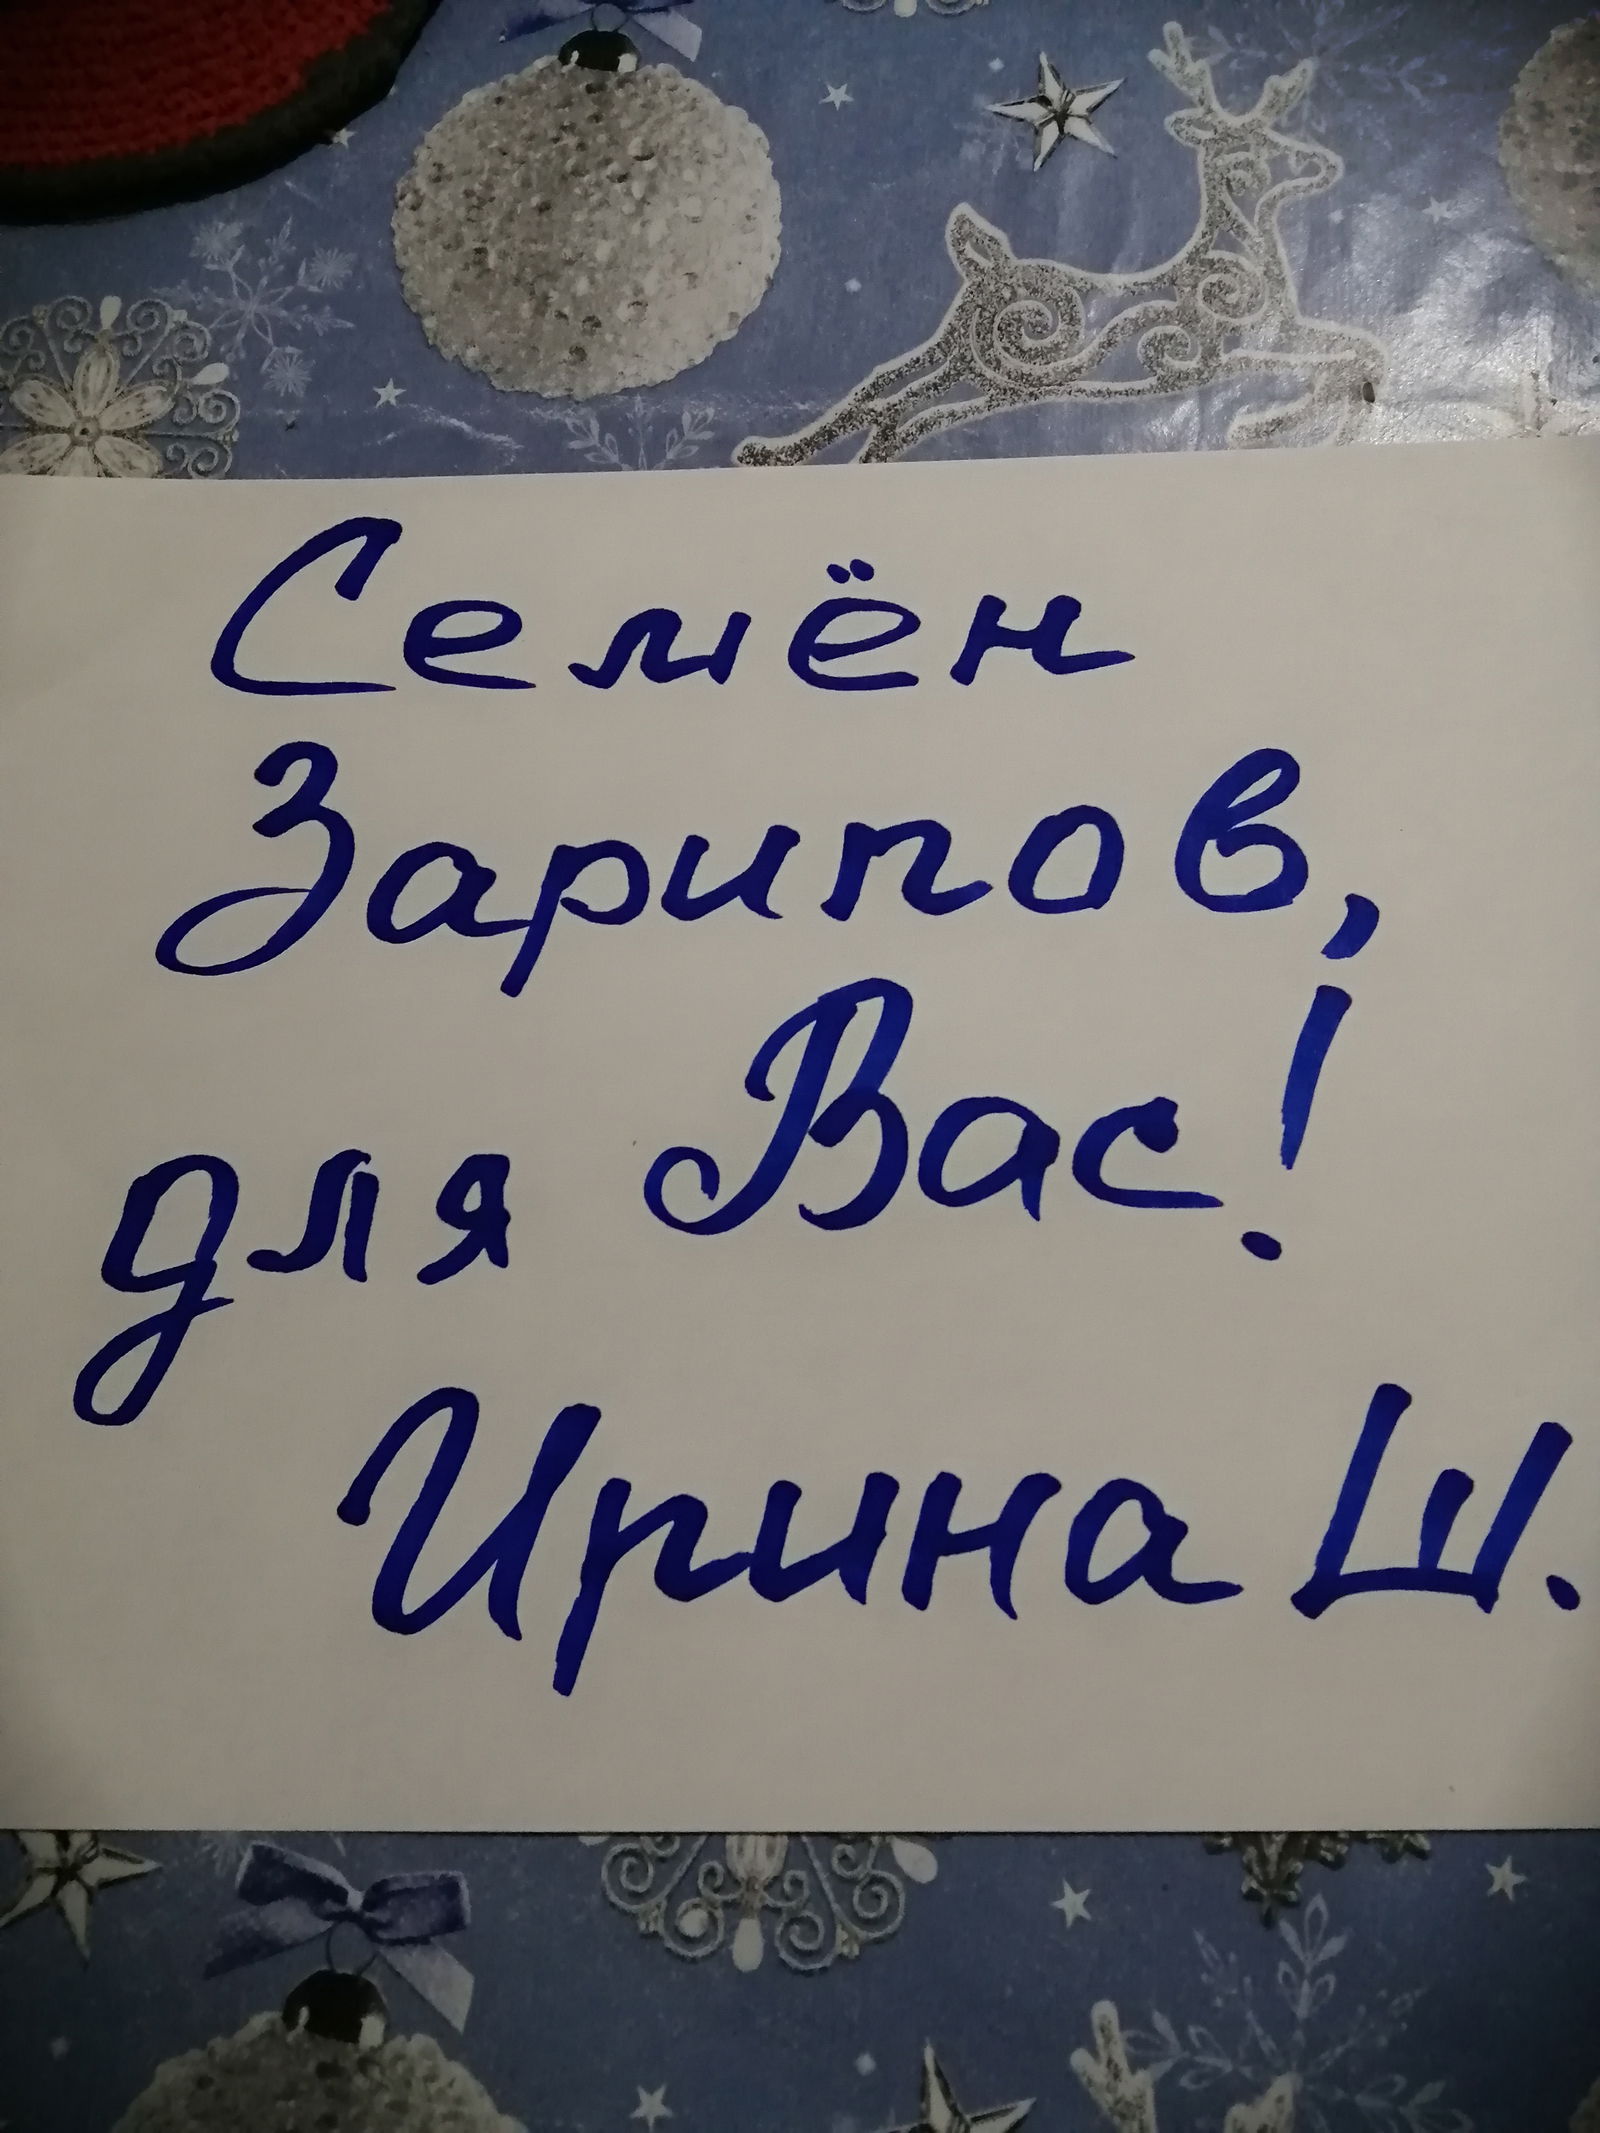 Семён
Зарипов,
для Вас!
Ирина Ш.